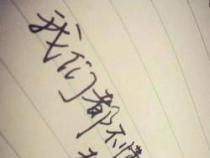 我们都不情